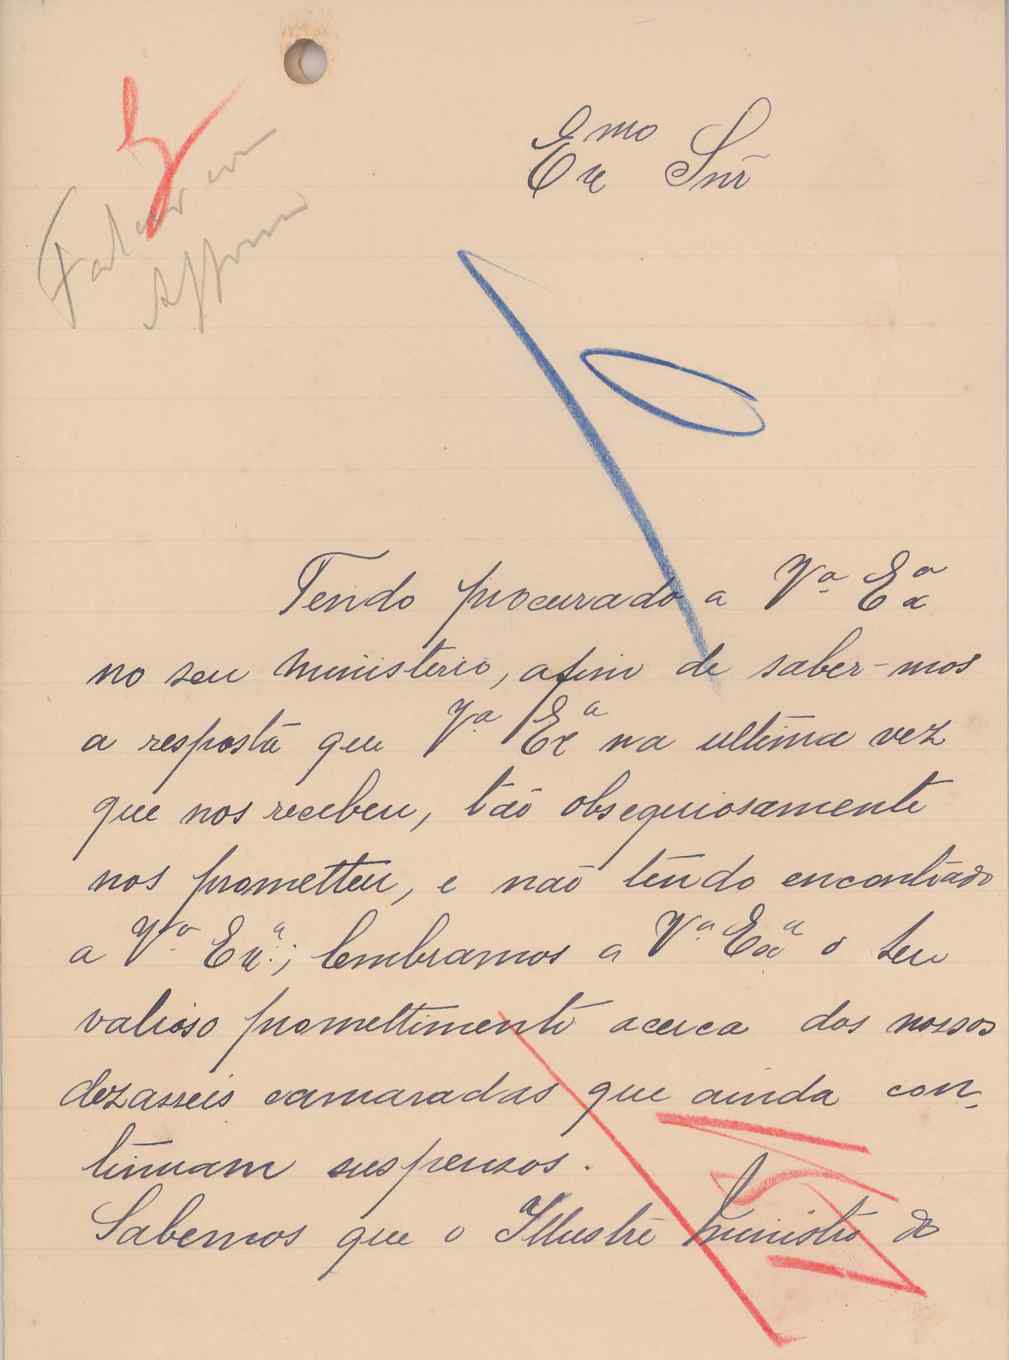 Exmo Snr
Tendo procurado a Vª Exª
no seu ministerio, afim de saber-mos
a resposta que Vª Exª na ultima vez
que nos recebeu, tão obsequiosamente
nos prometteu, e não tendo encontrado
a Vª Exª; lembramos a Vª Exª o seu
valioso promettimento acerca dos nossos
dezasseis camaradas que ainda con-
tinuam suspensos.
Sabemos que o Illustre Ministro do